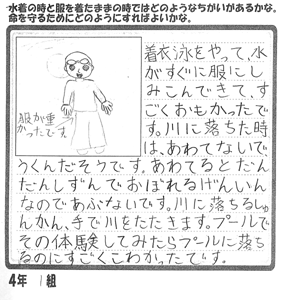 水着の時と服を着たままの時ではどのようなちがいがあるかな。
命を守るためにどのようにすればよいかな。
服が重
かったです。
着衣泳をやって、水
がすぐに服にし
みこんできて、す
ごくおもかったで
す。川に落ちた時
は、あわてないで
うくんだそうです。あわてるとだん
だんしずんでおぼれるげんいん
なのであぶないです。川に落ちるしゅ
んかん、手で川をたたきます。プールで
その体験してみたらプールに落ち
るのにすごくこわかったです。
4年 1組